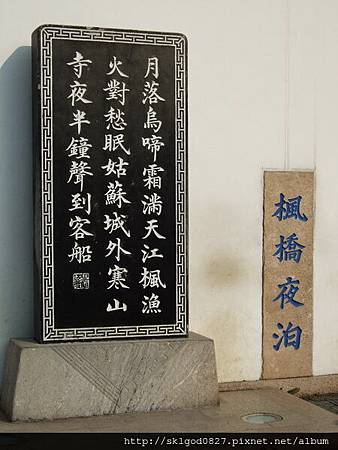 月落烏啼霜滿天江楓漁
火對愁眠姑蘇城外寒山
寺夜半鐘聲到客船
楓橋夜泊
http://sklgod0827.pixnet.net/album